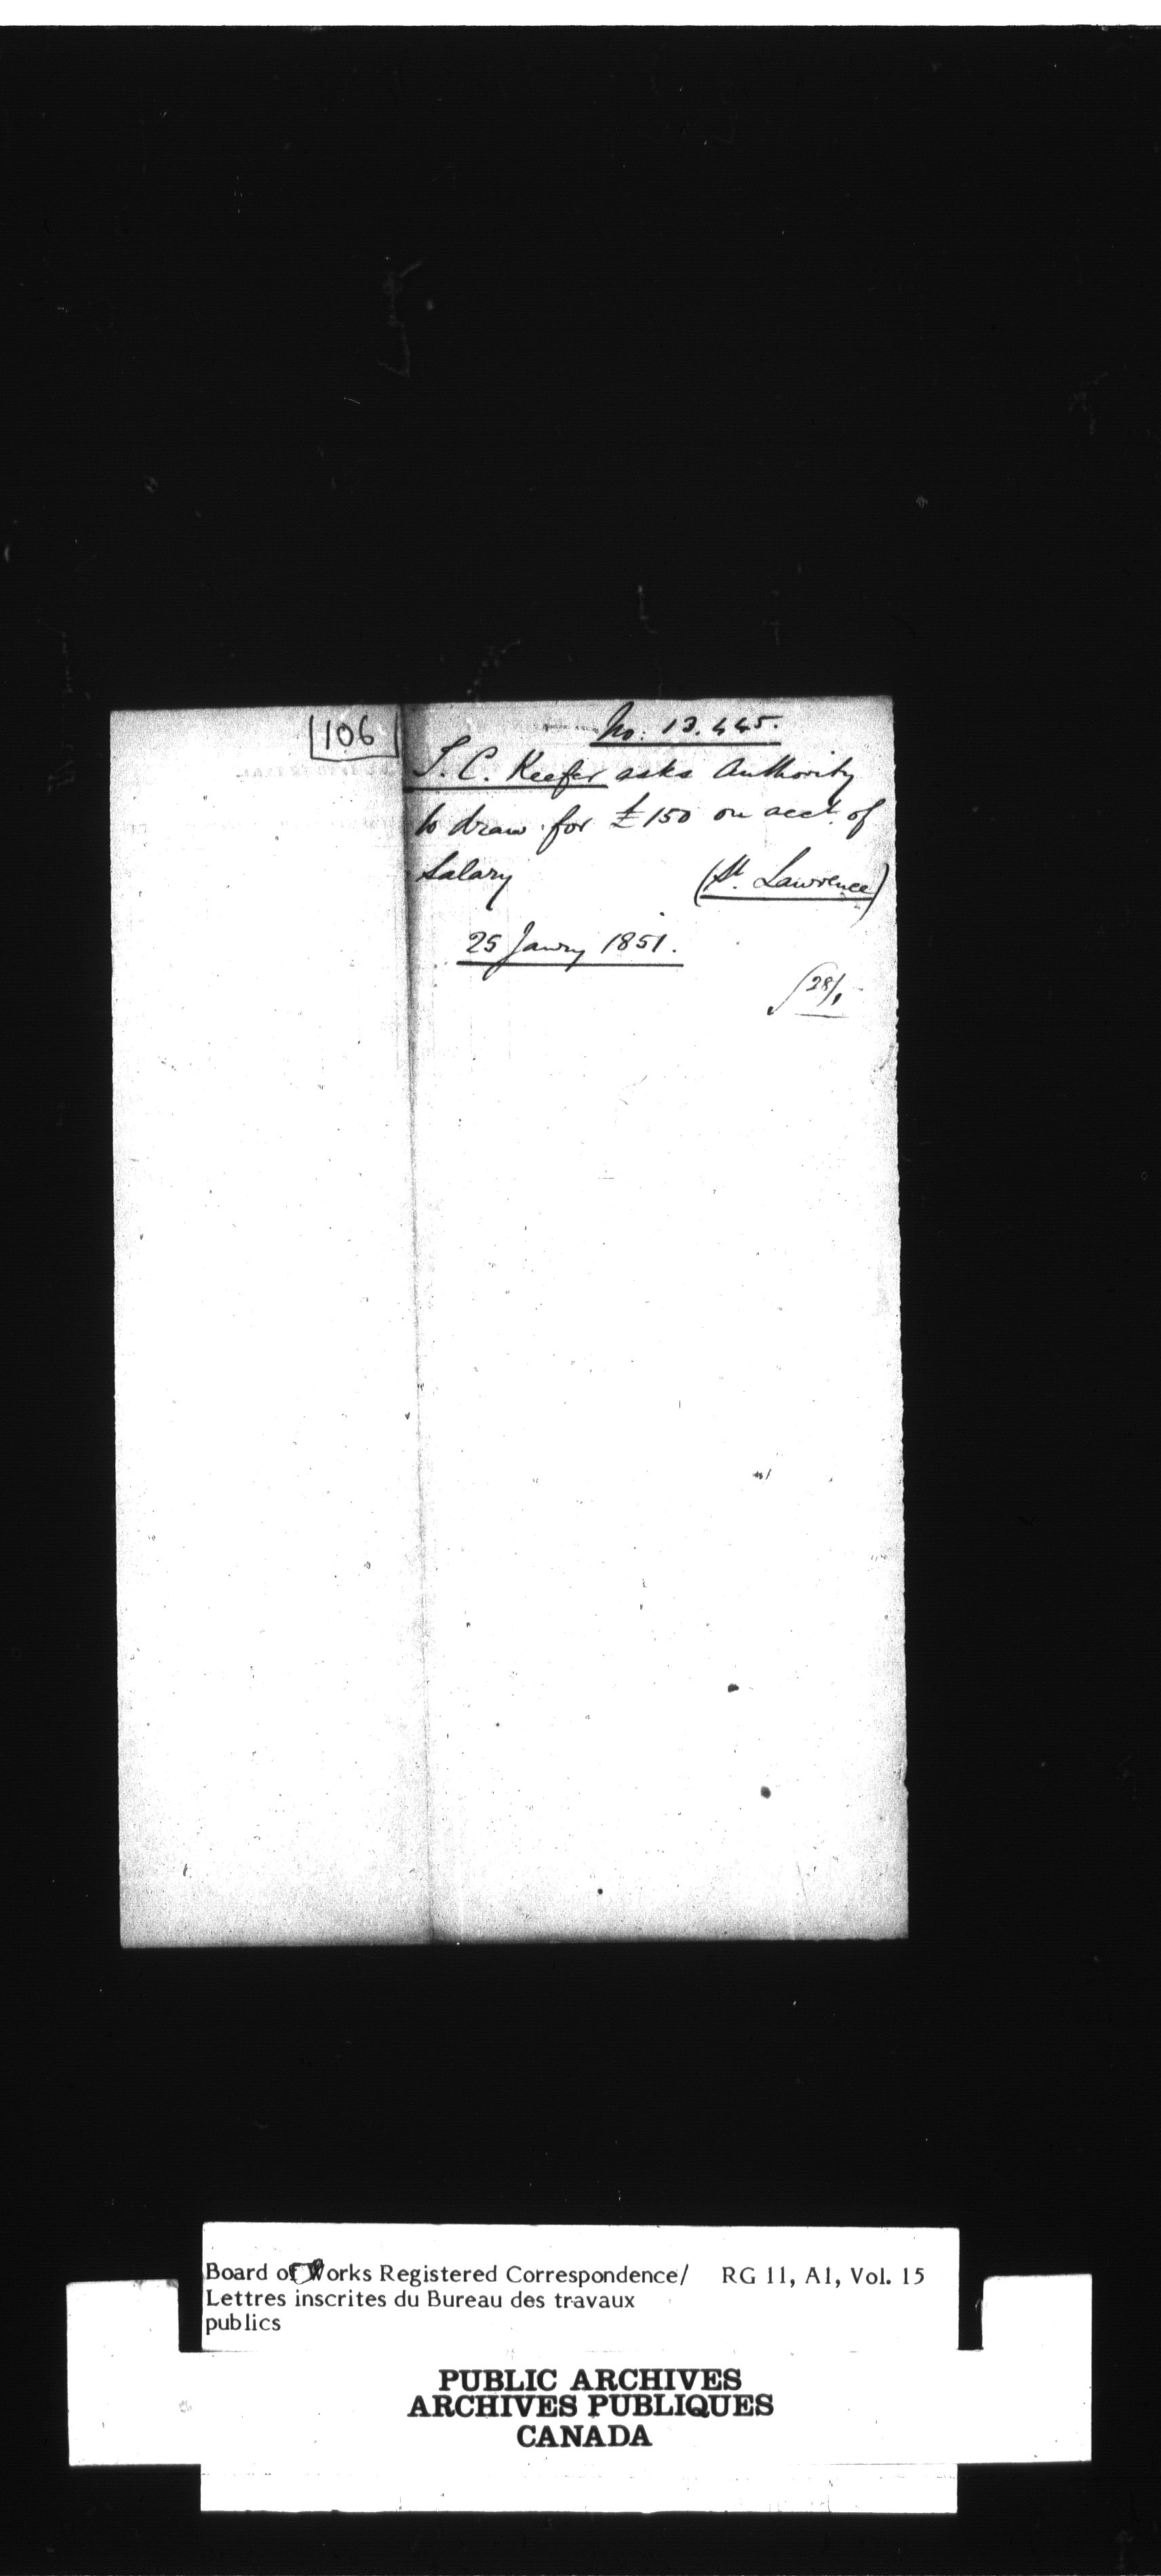 106
No. 13.445.
T. C. Keefer asks authority
to draw for £150 on acct. of
Salary
(St. Lawrence)
25 Janry 1851.
28/1
Board of Works Registered Correspondence/ RG 11, A1, Vol. 15
Lettres inscrites du Bureau des travaux
publics
PUBLIC ARCHIVES
ARCHIVES PUBLIQUES
CANADA